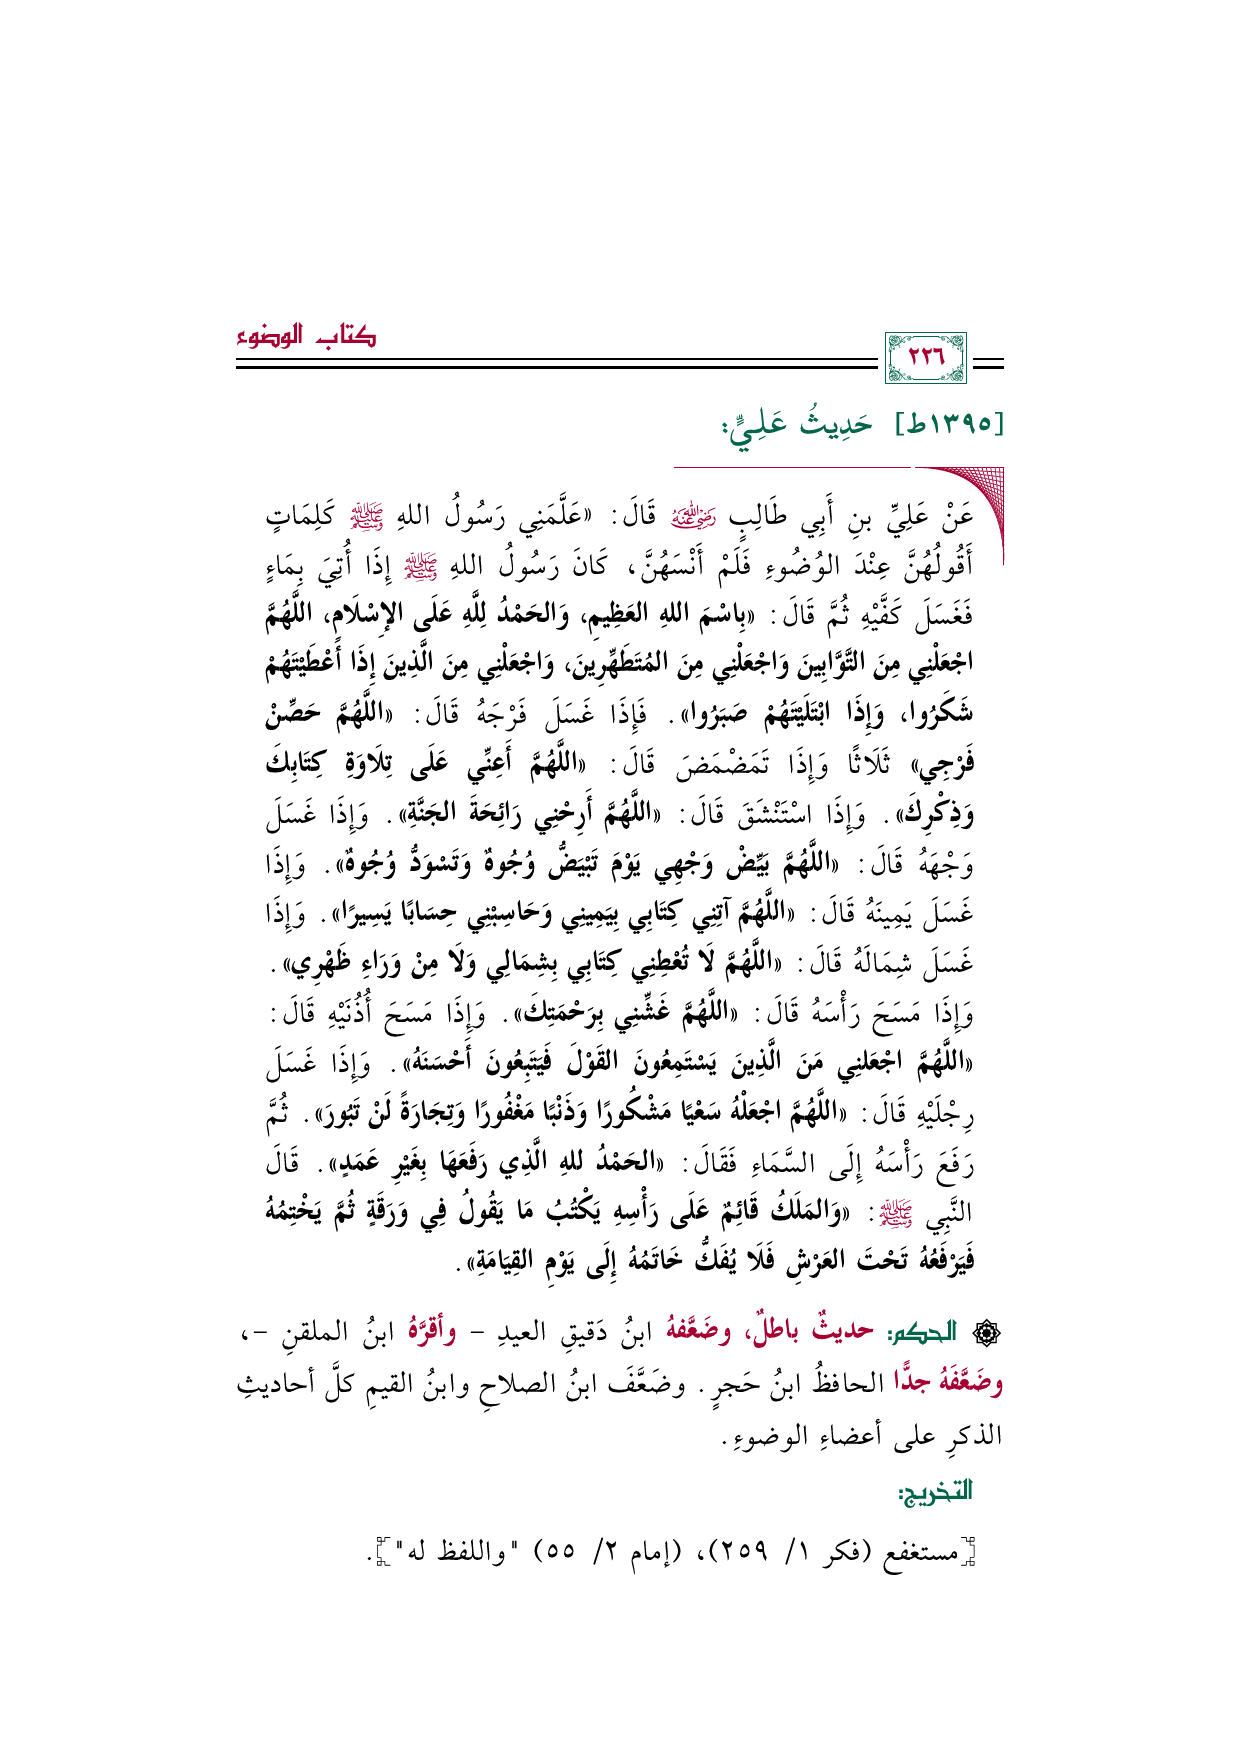 كتاب الوضوء
٢٢٦
[١٣٩٥ط] حَدِيثُ عَلِيٍّ:
عَنْ عَلِيِّ بنِ أَبِي طَالِبٍ رضي الله عنه قَالَ: «عَلَّمَنِي رَسُولُ اللهِ ﷺ كَلِمَاتٍ
أَقُولُهُنَّ عِنْدَ الوُضُوءِ فَلَمْ أَنْسَهُنَّ، كَانَ رَسُولُ اللهِ ﷺ إِذَا أُتِيَ بِمَاءٍ
فَغَسَلَ كَفَّيْهِ ثُمَّ قَالَ: «بِاسْمَ اللهِ العَظِيمِ، وَالحَمْدُ لِلَّهِ عَلَى الإِسْلَامِ، اللَّهُمَّ
اجْعَلْنِي مِنَ التَّوَّابِينَ وَاجْعَلْنِي مِنَ المُتَطَهِّرِينَ، وَاجْعَلْنِي مِنَ الَّذِينَ إِذَا أَعْطَيْتَهُمْ
شَكَرُوا، وَإِذَا ابْتَلَيْتَهُمْ صَبَرُوا». فَإِذَا غَسَلَ فَرْجَهُ قَالَ: «اللَّهُمَّ حَصِّنْ
فَرْجِي» ثَلَاثًا وَإِذَا تَمَضْمَضَ قَالَ: «اللَّهُمَّ أَعِنِّي عَلَى تِلَاوَةِ كِتَابِكَ
وَذِكْرِكَ». وَإِذَا اسْتَنْشَقَ قَالَ: «اللَّهُمَّ أَرِحْنِي رَائِحَةَ الجَنَّةِ». وَإِذَا غَسَلَ
وَجْهَهُ قَالَ: «اللَّهُمَّ بَيِّضْ وَجْهِي يَوْمَ تَبْيَضُّ وُجُوهٌ وَتَسْوَدُّ وُجُوهٌ». وَإِذَا
غَسَلَ يَمِينَهُ قَالَ: «اللَّهُمَّ آتِنِي كِتَابِي بِيَمِينِي وَحَاسِبْنِي حِسَابًا يَسِيرًا». وَإِذَا
غَسَلَ شِمَالَهُ قَالَ: «اللَّهُمَّ لَا تُعْطِنِي كِتَابِي بِشِمَالِي وَلَا مِنْ وَرَاءِ ظَهْرِي».
وَإِذَا مَسَحَ رَأْسَهُ قَالَ: «اللَّهُمَّ غَشِّنِي بِرَحْمَتِكَ». وَإِذَا مَسَحَ أُذُنَيْهِ قَالَ:
«اللَّهُمَّ اجْعَلنِي مَنَ الَّذِينَ يَسْتَمِعُونَ القَوْلَ فَيَتَبِعُونَ أَحْسَنَهُ». وَإِذَا غَسَلَ
رِجْلَيْهِ قَالَ: «اللَّهُمَّ اجْعَلْهُ سَعْيًا مَشْكُورًا وَذَنْبًا مَغْفُورًا وَتِجَارَةً لَنْ تَبُورَ». ثُمَّ
رَفَعَ رَأْسَهُ إِلَى السَّمَاءِ فَقَالَ: «الحَمْدُ للهِ الَّذِي رَفَعَهَا بِغَيْرِ عَمَدٍ». قَالَ
النَّبِي ﷺ: «وَالمَلَكُ قَائِمٌ عَلَى رَأْسِهِ يَكْتُبُ مَا يَقُولُ فِي وَرَقَةٍ ثُمَّ يَخْتِمُهُ
فَيَرْفَعُهُ تَحْتَ العَرْشِ فَلَا يُفَكُّ خَاتَمُهُ إِلَى يَوْمِ القِيَامَةِ».
الحكم: حديثٌ باطلٌ، وضَعَّفهُ ابنُ دَقيقِ العيدِ – وأقرَّهُ ابنُ الملقنِ –،
وضَعَّفَهُ جدًّا الحافظُ ابنُ حَجرٍ. وضَعَّفَ ابنُ الصلاحِ وابنُ القيمِ كلَّ أحاديثِ
الذكرِ على أعضاءِ الوضوءِ.
التخريج:
[مستغفع (فكر ١/ ٢٥٩)، (إمام ٢/ ٥٥) "واللفظ له"].